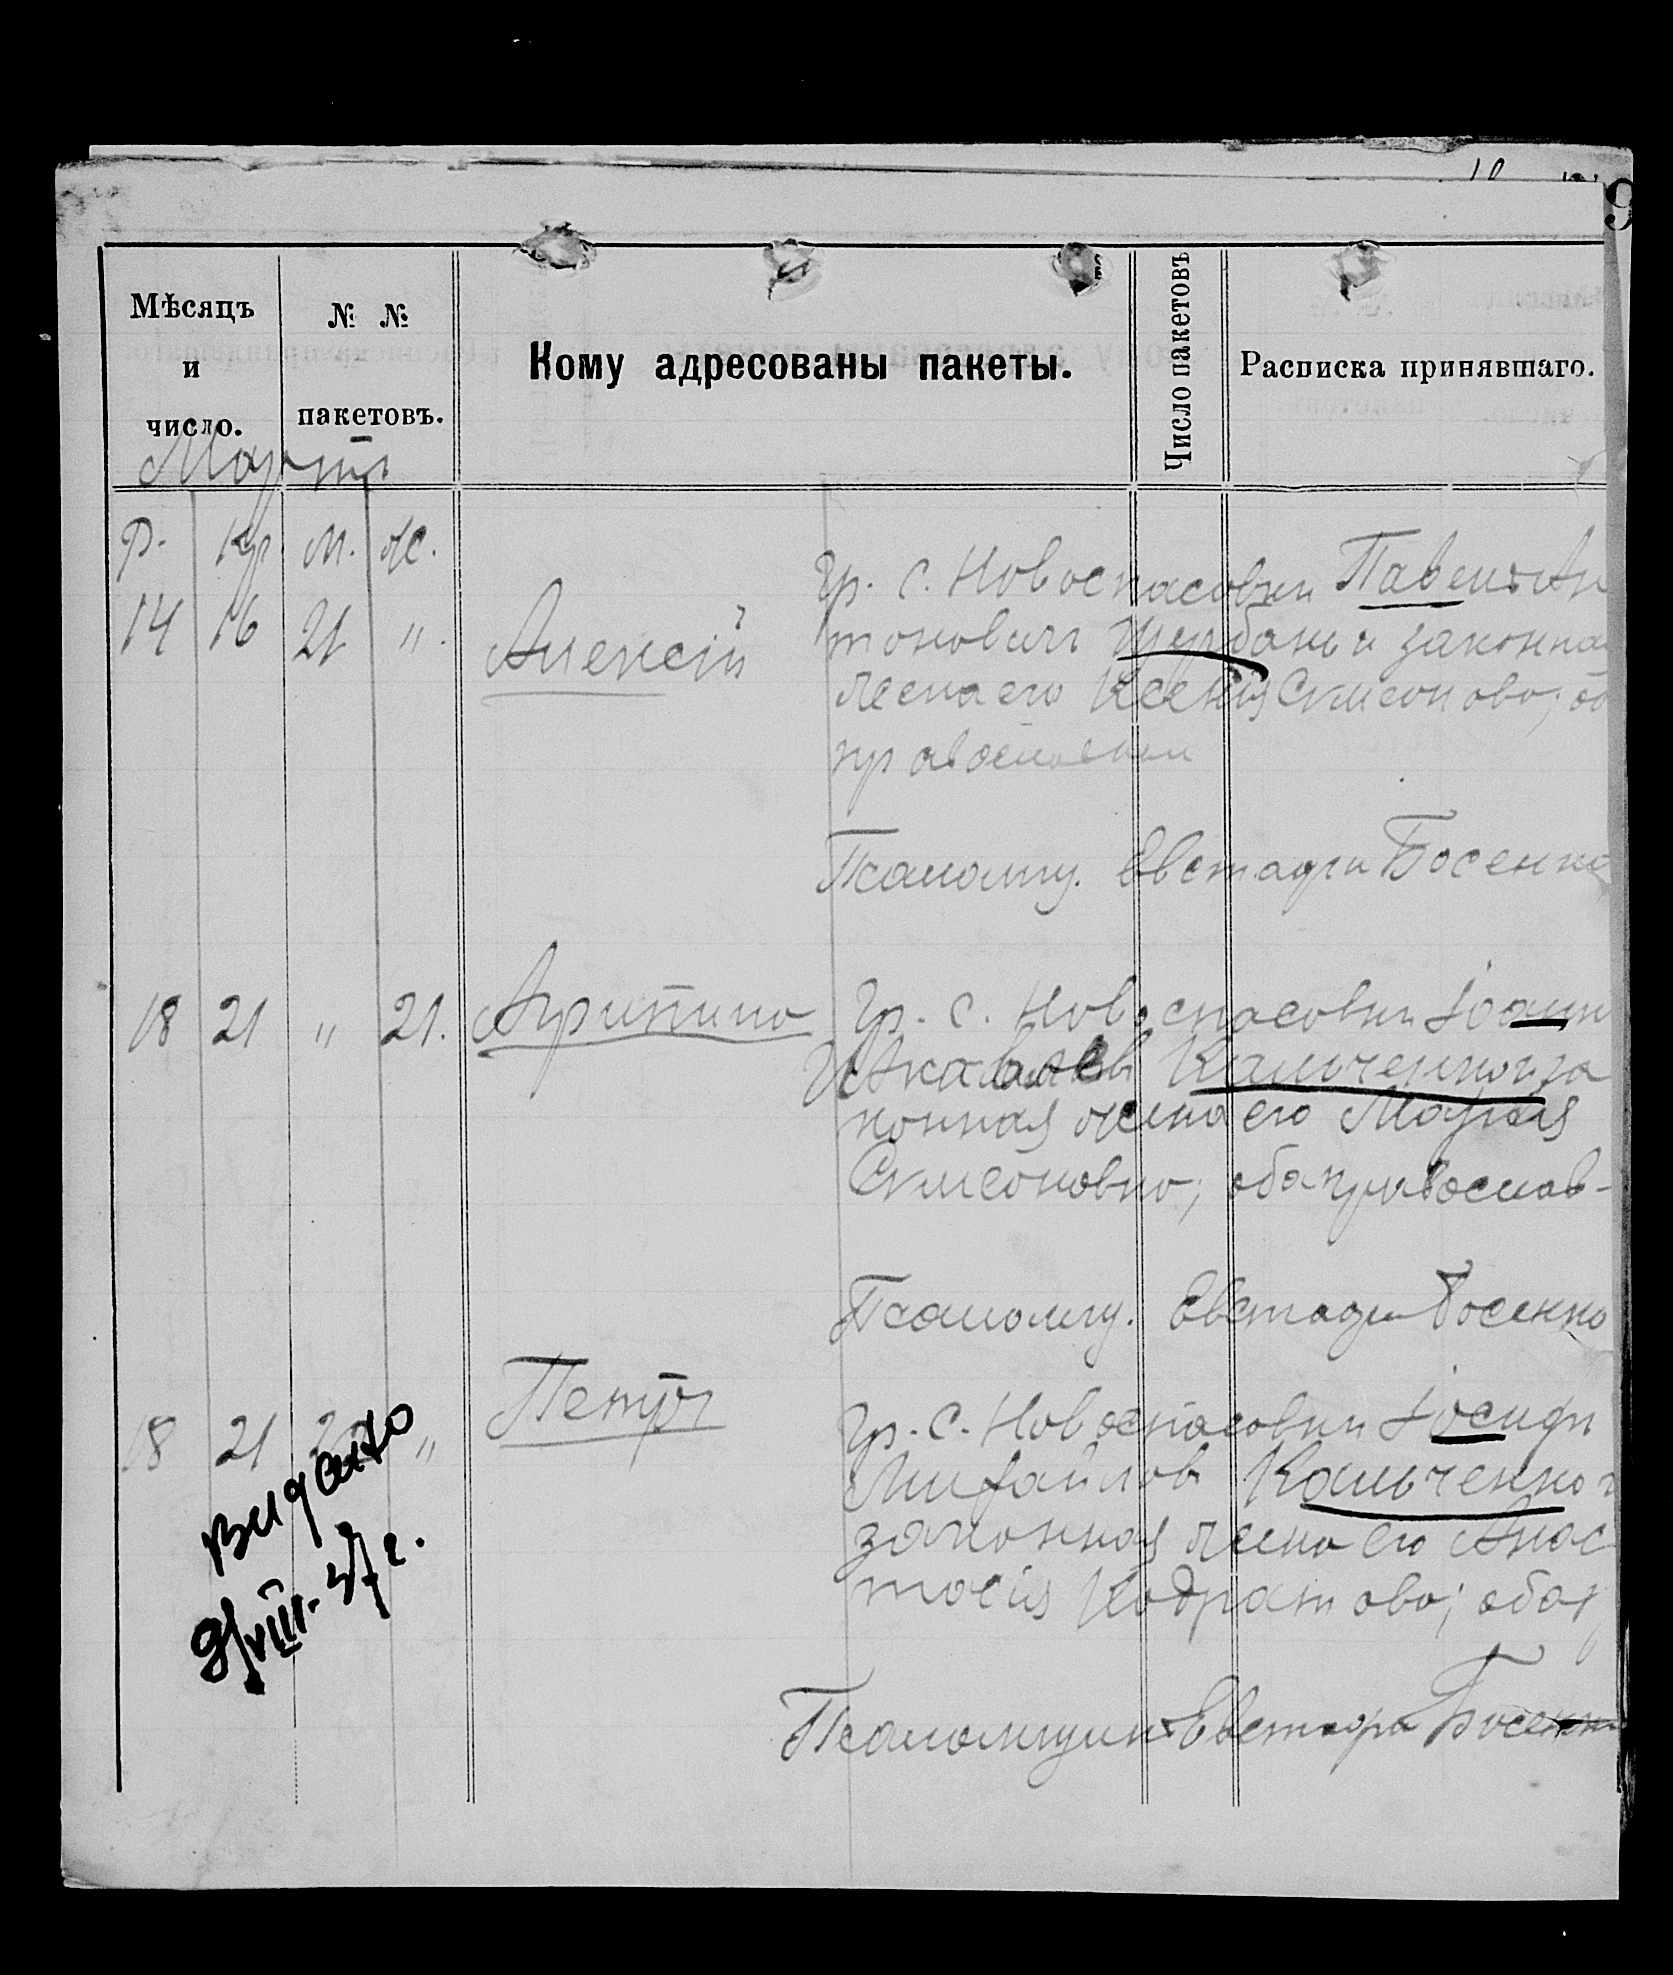 10
9
Мѣсяцъ и число.
№ № пакетовъ.
Кому адресованы пакеты.
Число пакетовъ
Расписка принявшаго.
Мартъ
Р. Кр. М. Ж.
14 16 21 "
Алексій
Гр. с. Новоспасовки Павелъ Ан
тоновичъ Щурбань и законная
жена его Ксенія Симеонова; об
православны
Псаломщ. Евстафи Босенко
18 21 " 21.
Агрипина
Гр. с. Новоспасовки Іоанн
Кальченко и за
конная жена его Марія
Симеоновна; оба православ-
Псаломщ. Евстафи Босенко
18 21 "
Петръ
Гр. с. Новоспасовки Іосифъ
Михайловъ Кальченко и
законная жена его Анас
тасія Кодратова; оба
Видано
9/VIII.
Псаломщикъ Евстафи Босенко